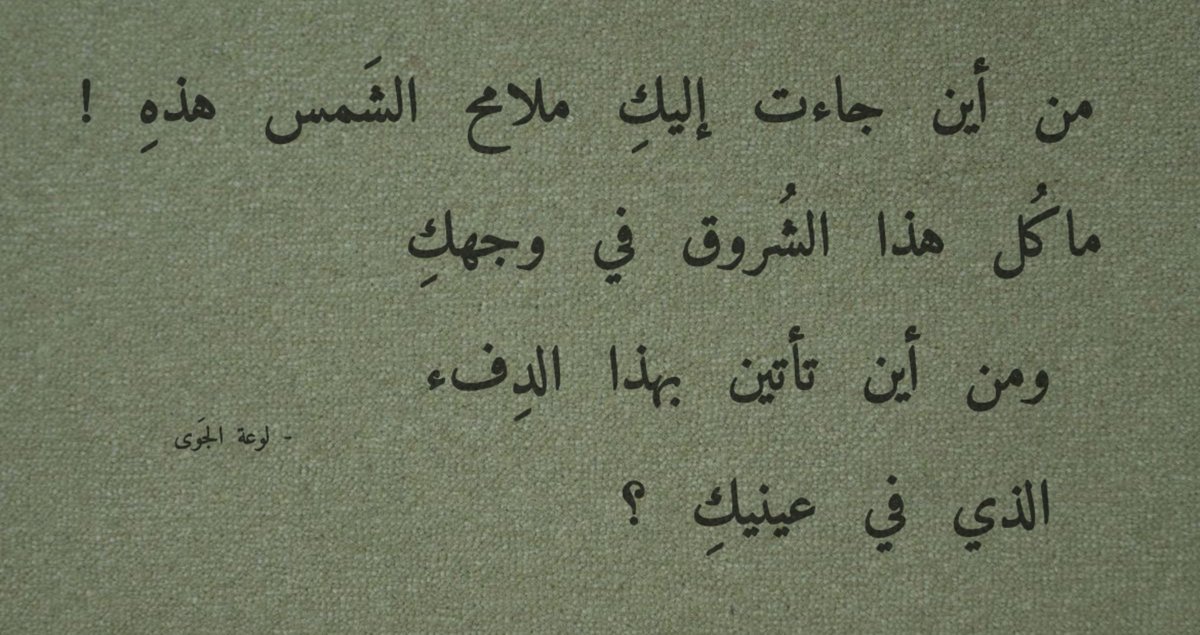 من أين جاءت إليكِ ملامح الشَمس هذهِ !
ماكُل هذا الشُروق في وجهكِ
ومن أين تأتين بهذا الدِفء
- لوعة الجَوى
الذي في عينيكِ ؟